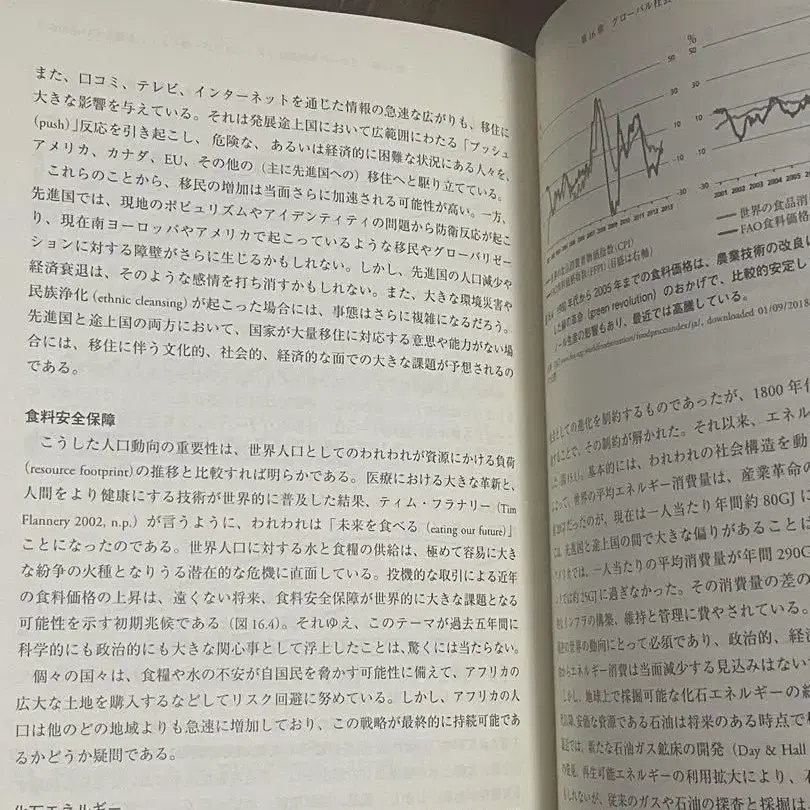 また、口コミ、テレビ、インターネットを通じた情報の急速な広がりも、移住に
大きな影響を与えている。それは発展途上国において広範囲にわたる「プッシュ
(push)」反応を引き起こし、危険な、あるいは経済的に困難な状況にある人々を、
アメリカ、カナダ、EU、その他の（主に先進国への）移住へと駆り立てている。
これらのことから、移民の増加は当面さらに加速される可能性が高い。一方、
先進国では、現地のポピュリズムやアイデンティティの問題から防衛反応が起こ
り、現在南ヨーロッパやアメリカで起こっているような移民やグローバリゼー
ションに対する障壁がさらに生じるかもしれない。しかし、先進国の人口減少や
経済衰退は、そのような感情を打ち消すかもしれない。また、大きな環境災害や
民族浄化 (ethnic cleansing) が起こった場合には、事態はさらに複雑になるだろう。
先進国と途上国の両方において、国家が大量移住に対応する意思や能力がない場
合には、移住に伴う文化的、社会的、経済的な面での大きな課題が予想されるの
である。
食料安全保障
こうした人口動向の重要性は、世界人口としてのわれわれが資源にかける負荷
(resource footprint) の推移と比較すれば明らかである。医療における大きな革新と、
人間をより健康にする技術が世界的に普及した結果、ティム・フラナリー (Tim
Flannery 2002, n.p.) が言うように、われわれは「未来を食べる (eating our future)」
ことになったのである。世界人口に対する水と食糧の供給は、極めて容易に大き
な紛争の火種となりうる潜在的な危機に直面している。投機的な取引による近年
の食料価格の上昇は、遠くない将来、食料安全保障が世界的に大きな課題となる
可能性を示す初期兆候である（図 16.4）。それゆえ、このテーマが過去五年間に
科学的にも政治的にも大きな関心事として浮上したことは、驚くには当たらない。
個々の国々は、食糧や水の不安が自国民を脅かす可能性に備えて、アフリカの
広大な土地を購入するなどしてリスク回避に努めている。しかし、アフリカの人
口は他のどの地域よりも急速に増加しており、この戦略が最終的に持続可能であ
るかどうか疑問である。
化石エネルギー
第16章 グローバル社会
%
50
30
10
-10
-30
2001 2002 2003 2004 2005
世界の食品消
FAO食料価格
年代から 2005 年までの食料価格は、農業技術の改良
緑の革命 (green revolution) のおかげで、比較的安定し
ノール生産の影響もあり、最近では高騰している。
downloaded 01/09/2018
としての進化を制約するものであったが、1800 年代
ことで、その制約が解かれた。それ以来、エネル
基本的には、われわれの社会構造を動
って、世界の平均エネルギー消費量は、産業革命の
だったのが、現在は一人当たり年間約 80GJ に
は、先進国と途上国の間で大きな偏りがあることは
メリカでは、一人当たりの平均消費量が年間 290G
では約 25GJ に過ぎなかった。その消費量の差の
インフラの構築、維持と管理に費やされている。
の世界の動向にとって必須であり、政治的、経
からエネルギー消費は当面減少する見込みはない
しかし、地球上で採掘可能な化石エネルギーの総
安価な資源である石油は将来のある時点で
では、新たな石油ガス鉱床の開発 (Day & Hall
再生可能エネルギーの利用拡大により、石
しれないが、従来のガスや石油の探査と採掘は